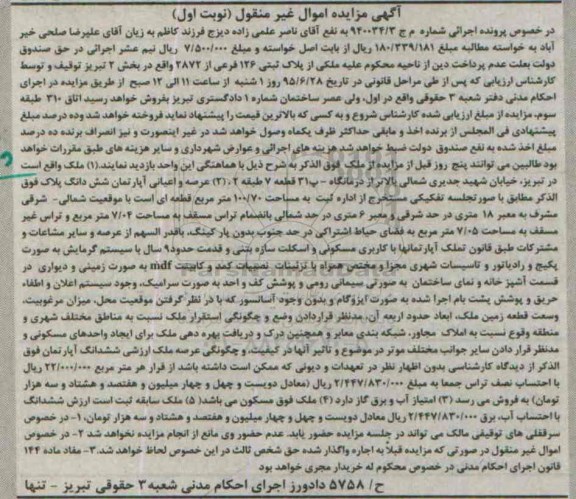 آگهی مزایده اموال غیر منقول (نوبت اول)
در خصوص پرونده اجرائی شماره م ج ۹۴۰۰۳۴/۳ به نفع آقای ناصر علمی زاده دیزج فرزند کاظم به زیان آقای علیرضا صلحی خیر
آباد به خواسته مطالبه مبلغ ۱۸۰/۳۳۹/۱۸۱ ریال از بابت اصل خواسته و مبلغ ۷/۵۰۰/۰۰۰ ریال نیم عشر اجرائی در حق صندوق
دولت بعلت عدم پرداخت دین از ناحیه محکوم علیه ملکی از پلاک ثبتی ۱۲۶ فرعی از ۲۸۷۲ واقع در بخش ۲ تبریز توقیف و توسط
کارشناس ارزیابی که پس از طی مراحل قانونی در تاریخ ۹۵/۶/۲۸ روز ۱ شنبه از ساعت ۱۱ الی ۱۲ صبح از طریق مزایده در اجرای
احکام مدنی دفتر شعبه ۳ حقوقی واقع در اول، ولی عصر ساختمان شماره ۱ دادگستری تبریز بفروش خواهد رسید اتاق ۳۱۰ طبقه
سوم، مزایده از مبلغ ارزیابی شده کارشناس شروع و به کسی که بالاترین قیمت را پیشنهاد نماید فروخته خواهد شد وده درصد مبلغ
پیشنهادی فی المجلس از برنده اخذ و مابقی حداکثر ظرف یکماه وصول خواهد شد در غیر اینصورت و نیز انصراف برنده ده درصد
مبلغ اخذ شده به نفع صندوق دولت ضبط خواهد شد هزینه های اجرائی و عوارض شهرداری و سایر هزینه های طبق مقررات خواهد
بود طالبین می توانند پنج روز قبل از مزایده از ملک فوق الذکر به شرح ذیل با هماهنگی این واحد بازدید نمایند. (۱) ملک واقع است
در تبریز، خیابان شهید جدیری شمالی بالاتر از درمانگاه - پ۳۱ قطعه ۷ طبقه ۲ .(۲) عرصه و اعیانی آپارتمان شش دانگ پلاک فوق
الذکر مطابق با صورتجلسه تفکیکی مستخرج از اداره ثبت به مساحت ۱۰۰/۷۰ متر مربع قطعه ای است با موقعیت شمالی- شرقی
مشرف به معبر ۱۸ متری در حد شرقی و معبر ۶ متری در حد شمالی بانضمام تراس مسقف به مساحت ۷/۰۴ متر مربع و تراس غیر
مسقف به مساحت ۷/۰۵ متر مربع به فضای حیاط اشتراکی در حد جنوب بدون پار کینگ، باقدر السهم از عرصه و سایر مشاعات و
مشترکات طبق قانون تملک آپارتمانها با کاربری مسکونی و اسکلت سازه بتنی و قدمت حدود۹ سال با سیستم گرمایش به صورت
پکیج و رادیاتور و تاسیسات شهری مجزا و مختص همراه با تزئینات نصبیات کمد و کابینت mdf به صورت زمینی و دیواری در
قسمت آشپز خانه و نمای ساختمان به صورتی سیمانی رومی و پوشش کف و احد به صورت سرامیک، وجود سیستم اعلان و اطفاء
حریق و پوشش پشت بام اجرا شده به صورت ایزوگام و بدون وجود آسانسور که با در نظر گرفتن موقعیت محل، میزان مرغوبیت،
وسعت قطعه زمین ملک، ابعاد حدود اربعه آن، مدنظر قراردادن وضع و چگونگی استقرار ملک نسبت به مناطق مختلف شهری و
منطقه وقوع نسبت به املاک مجاور، شبکه بندی معابر و همچنین درک و دریافت بهره دهی ملک برای ایجاد واحدهای مسکونی و
مدنظر قرار دادن سایر جوانب مختلف موثر در موضوع و تاثیر آنها در کیفیت، و چگونگی عرصه ملک ارزشی ششدانگ آپارتمان فوق
الذکر از دیدگاه کارشناسی بدون اظهار نظر در تعهدات و دیونی که ممکن است داشته باشد از قرار هر متر مربع ۲۲/۰۰۰/۰۰۰ ریال
با احتساب نصف تراس جمعا به مبلغ ۲/۴۴۷/۸۳۰/۰۰۰ ریال (معادل دویست و چهل و چهار میلیون و هفتصد و هشتاد و سه هزار
تومان) به فروش می رسد (۳) امتیاز آب و برق گاز دارد (۴) ملک فوق مسکون می باشد( ۵) ملک سابقه ثبت است ارزش ششدانگ
با احتساب آب، برق ۲/۴۴۷/۸۳۰/۰۰۰ ریال معادل دویست و چهل و چهار میلیون و هفتصد و هشتاد و سه هزار تومان، ۱- در خصوص
سرقفلی های توقیفی مالک می تواند در جلسه مزایده حضور یابد. عدم حضور وی مانع از انجام مزایده نخواهد شد ۲- در خصوص
اموال غیر منقول در صورتی که مزایده قبلاً به اجاره واگذار شده حق شخص ثالث در این خصوص لحاظ خواهد شد. ۳- مفاد ماده ۱۴۴
قانون اجرای احکام مدنی در خصوص محکوم له خریدار مجری خواهد بود
ح/ ۵۷۵۸ دادورز اجرای احکام مدنی شعبه۳ حقوقی تبریز - تنها